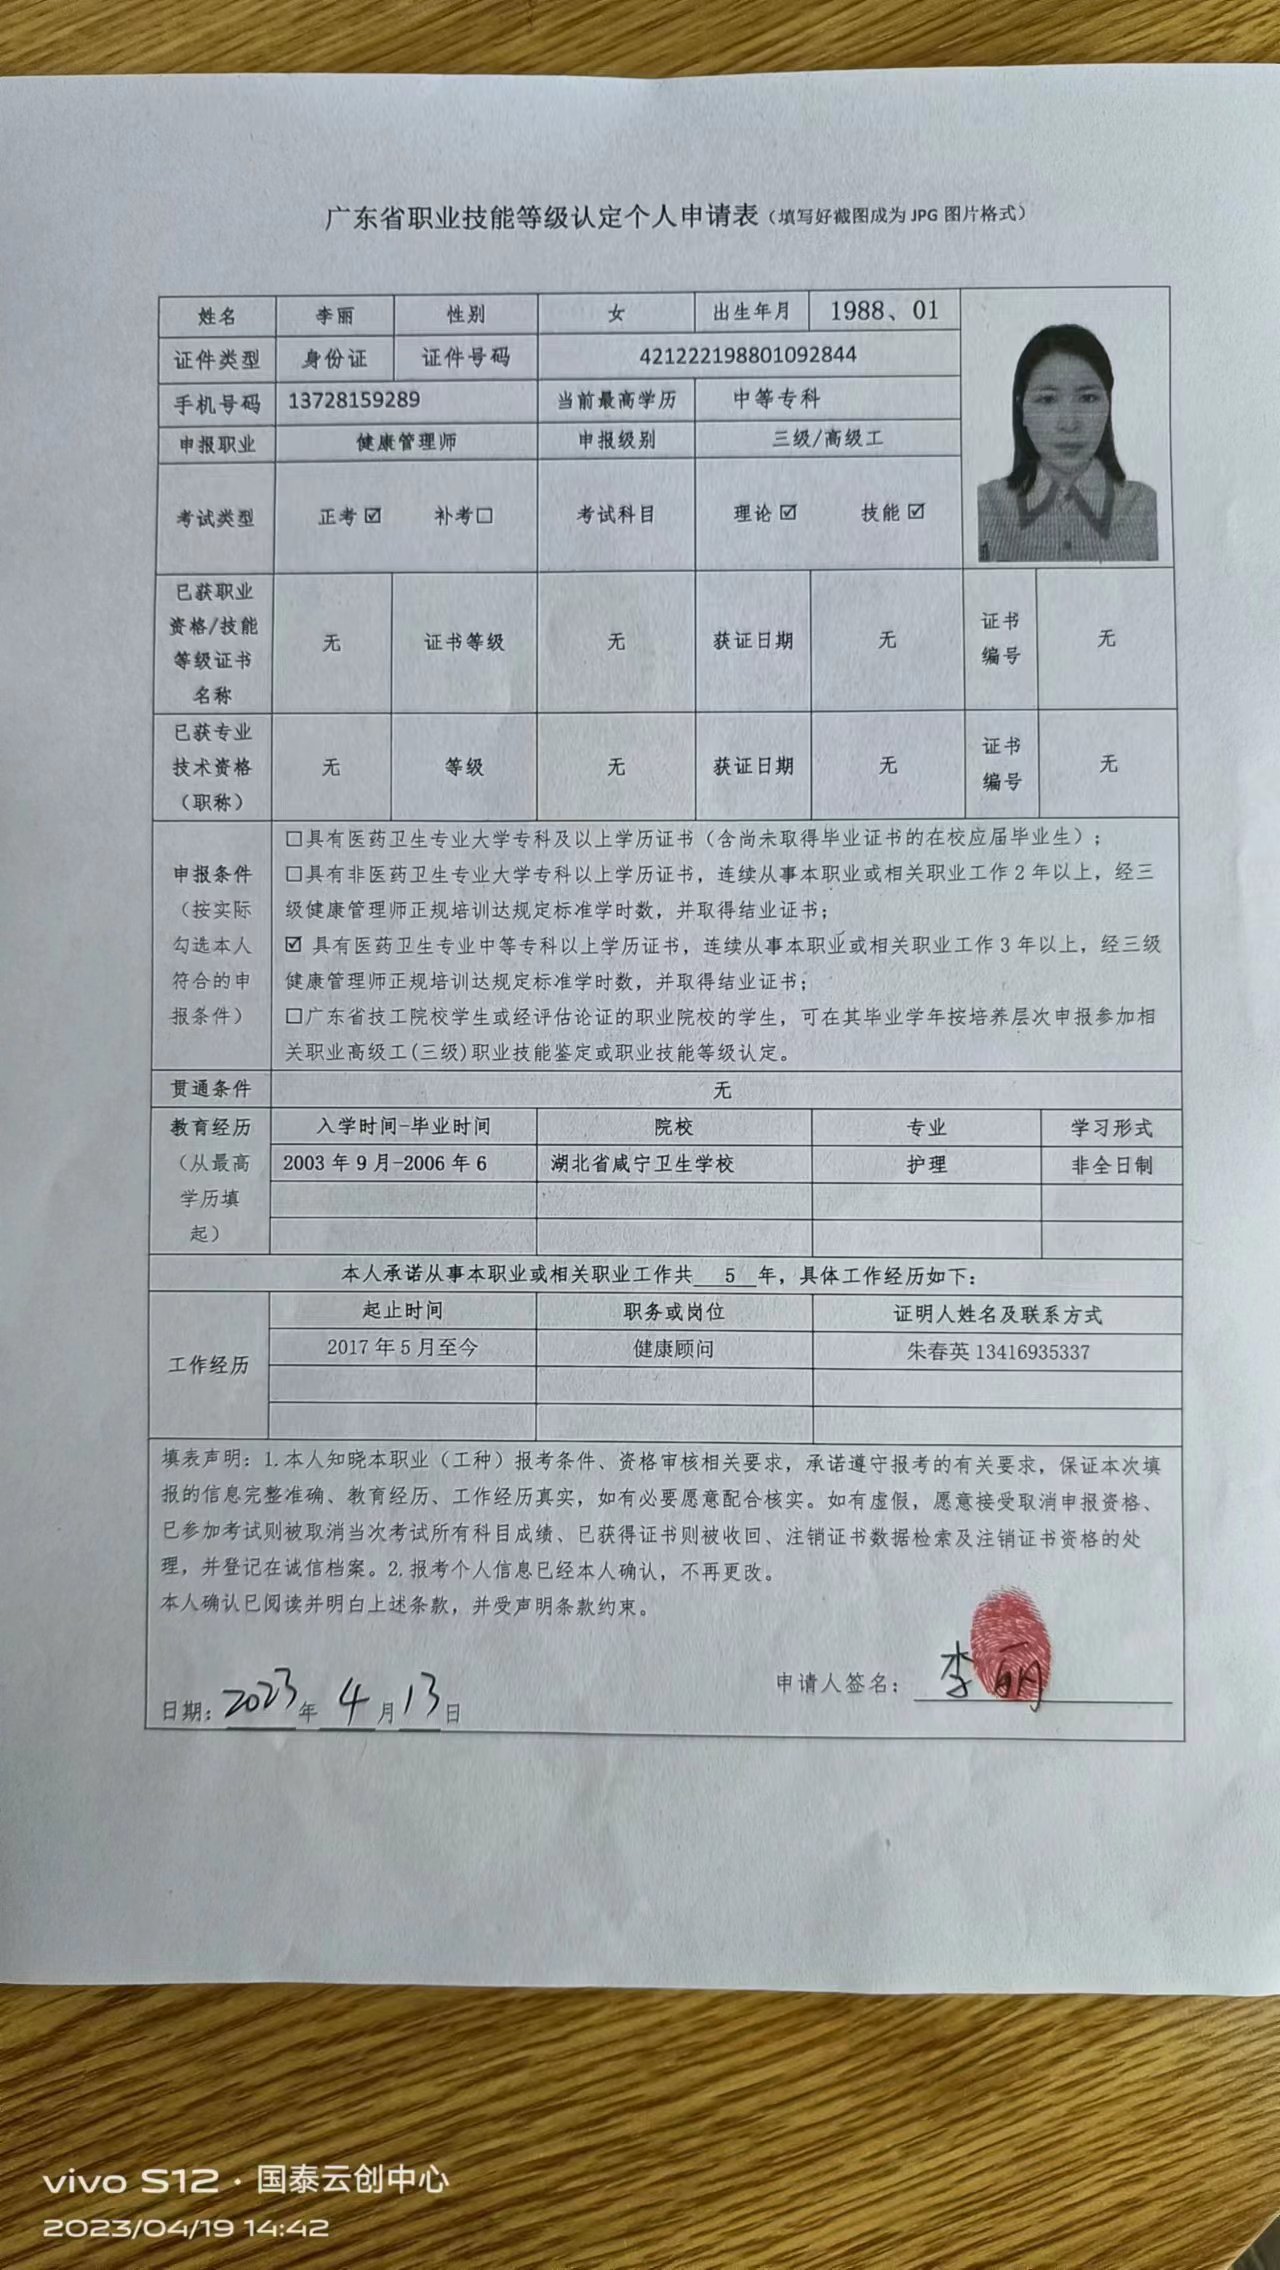 广东省职业技能等级认定个人申请表（填写好截图成为 JPG 图片格式）
姓名 李丽 性别 女 出生年月 1988、01
证件类型 身份证 证件号码 421222198801092844
手机号码 13728159289 当前最高学历 中等专科
申报职业 健康管理师 申报级别 三级/高级工
考试类型 正考☑ 补考☐ 考试科目 理论☑ 技能☑
已获职业
资格/技能
等级证书
名称
无 证书等级 无 获证日期 无
证书
编号
无
已获专业
技术资格
（职称）
无 等级 无 获证日期 无
证书
编号
无
申报条件
（按实际
勾选本人
符合的申
报条件）
☐具有医药卫生专业大学专科及以上学历证书（含尚未取得毕业证书的在校应届毕业生）；
☐具有非医药卫生专业大学专科以上学历证书，连续从事本职业或相关职业工作 2 年以上，经三
级健康管理师正规培训达规定标准学时数，并取得结业证书；
☑ 具有医药卫生专业中等专科以上学历证书，连续从事本职业或相关职业工作 3 年以上，经三级
健康管理师正规培训达规定标准学时数，并取得结业证书；
☐广东省技工院校学生或经评估论证的职业院校的学生，可在其毕业学年按培养层次申报参加相
关职业高级工(三级)职业技能鉴定或职业技能等级认定。
贯通条件 无
教育经历
（从最高
学历填
起）
入学时间-毕业时间 院校 专业 学习形式
2003 年 9 月-2006 年 6 湖北省咸宁卫生学校 护理 非全日制
本人承诺从事本职业或相关职业工作共 5 年，具体工作经历如下：
工作经历
起止时间 职务或岗位 证明人姓名及联系方式
2017 年 5 月至今 健康顾问 朱春英 13416935337
填表声明：1.本人知晓本职业（工种）报考条件、资格审核相关要求，承诺遵守报考的有关要求，保证本次填
报的信息完整准确、教育经历、工作经历真实，如有必要愿意配合核实。如有虚假，愿意接受取消申报资格、
已参加考试则被取消当次考试所有科目成绩、已获得证书则被收回、注销证书数据检索及注销证书资格的处
理，并登记在诚信档案。2.报考个人信息已经本人确认，不再更改。
本人确认已阅读并明白上述条款，并受声明条款约束。
申请人签名： 李丽
日期： 2023 年 4 月 13 日
vivo S12 · 国泰云创中心
2023/04/19 14:42